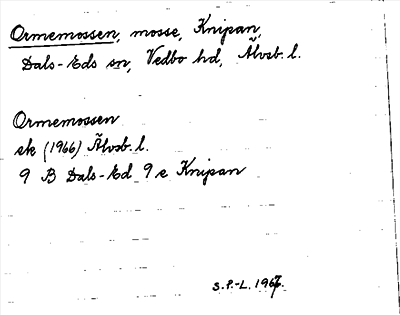 Ormemossen, mosse, Knipan,
Dals-Eds sn, Vedbo hd, Älvsb. l.
Ormemossen
ek (1966) Älvsb. l.
9 B Dals-Ed 9 e Knipan
S.P.-L. 1967.